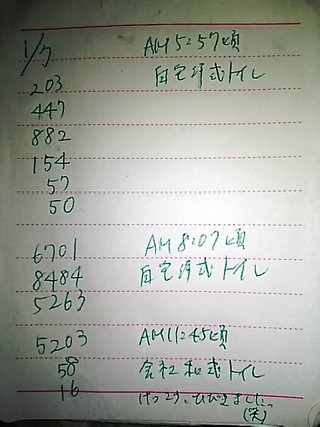 1/7 AM 5:57頃
203 自宅洋式トイレ
447
882
154
57
50
6701 AM 8:07頃
8484 自宅洋式トイレ
5263
5203 AM11:45頃
58 会社和式トイレ
16 けっこう、ひびきました。
(笑)